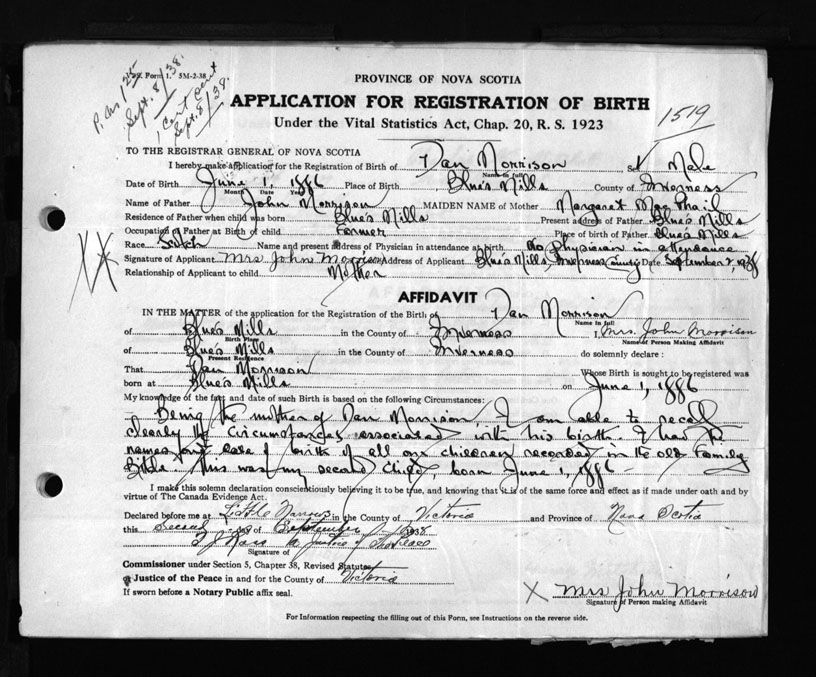 Form 1. 5M-2-38
Sept. 8/38.
Sept. 8/38.
PROVINCE OF NOVA SCOTIA
APPLICATION FOR REGISTRATION OF BIRTH
1519
Under the Vital Statistics Act, Chap. 20, R. S. 1923
TO THE REGISTRAR GENERAL OF NOVA SCOTIA
I hereby make application for the Registration of Birth of Dan Morrison Male
Name in full
Date of Birth June 1, 1886 Place of Birth Blue's Mills County of Inverness
Month Date Year
Name of Father John Morrison MAIDEN NAME of Mother Margaret MacPhail
Residence of Father when child was born Blue's Mills Present address of Father Blue's Mills
Occupation of Father at Birth of child Farmer Place of birth of Father Blue's Mills
Race Scotch Name and present address of Physician in attendance at birth No physician in attendance
Signature of Applicant Mrs John Morrison Address of Applicant Blue's Mills, Inverness County Date September 2, 1938
Relationship of Applicant to child Mother
AFFIDAVIT
IN THE MATTER of the application for the Registration of the Birth of Dan Morrison
Name in full
of Blue's Mills in the County of Inverness I, Mrs. John Morrison
Birth Place Name of Person Making Affidavit
of Blue's Mills in the County of Inverness do solemnly declare :
Present Residence
That Dan Morrison Whose Birth is sought to be registered was
born at Blue's Mills on June 1, 1886
My knowledge of the fact and date of such Birth is based on the following Circumstances:
Being the mother of Dan Morrison I am able to recall
clearly the circumstances associated with his birth. I had the
names and date of birth of all our children recorded in the old Family
Bible. This was my second child, born June 1, 1886 -
I make this solemn declaration conscientiously believing it to be true, and knowing that it is of the same force and effect as if made under oath and by
virtue of The Canada Evidence Act.
Declared before me at Little Narrows in the County of Victoria and Province of Nova Scotia
this Second day of September 1938
a Justice of the Peace
Signature of
Commissioner under Section 5, Chapter 38, Revised Statutes
a Justice of the Peace in and for the County of Victoria
If sworn before a Notary Public affix seal.
X Mrs John Morrison
Signature of Person making Affidavit
For Information respecting the filling out of this Form, see Instructions on the reverse side.